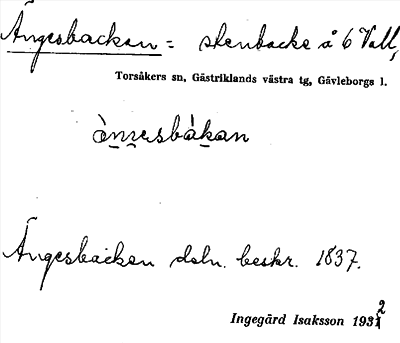 Ängesbackan = stenbacke å 6 Vall,
Torsåkers sn, Gästriklands västra tg, Gävleborgs l.
Ängesbacken dsln. beskr. 1837.
Ingegärd Isaksson 1932